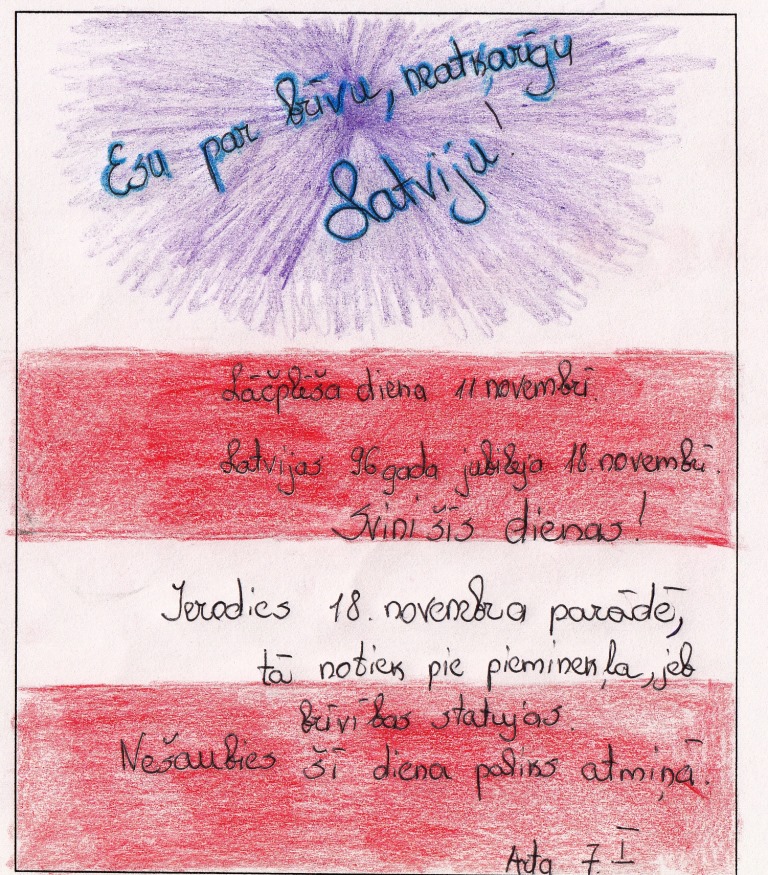 Esu par brīvu, neatkarīgu
Latviju!
Lāčplēša diena 11 novembrī.
Latvijas 96 gada jubileja 18. novembrī.
Svini šīs dienas!
Ierodies 18. novembra parādē,
tā notiek pie pieminekļa, jeb
brīvības statujas.
Nešaubies šī diena paliks atmiņā.
Arta 7. I